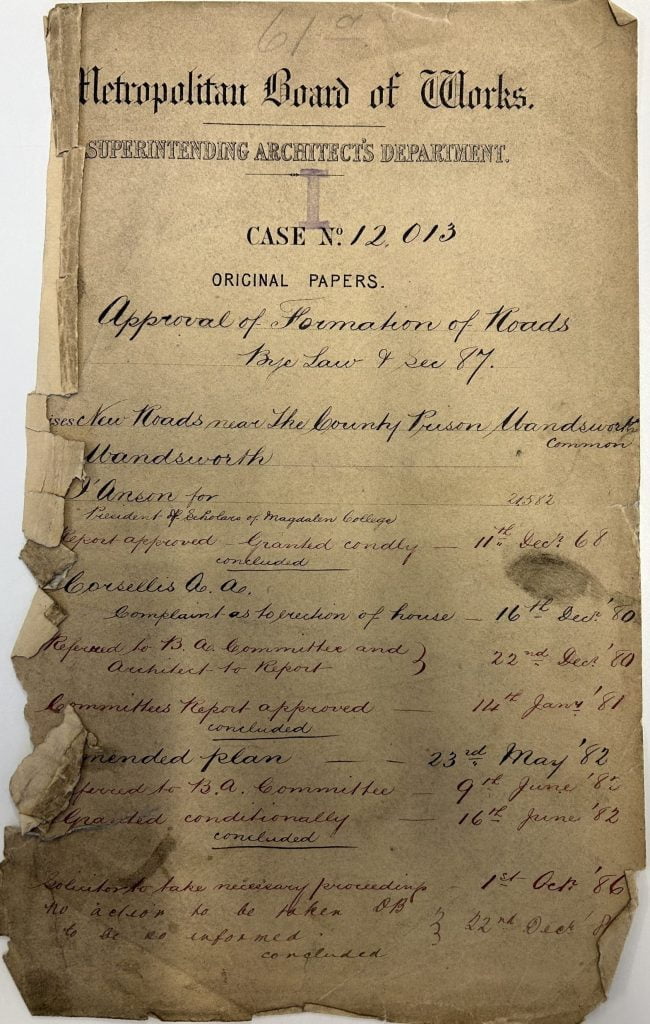 61a
Metropolitan Board of Works.
SUPERINTENDING ARCHITECT'S DEPARTMENT.
I
CASE No. 12,013
ORIGINAL PAPERS.
Approval of Formation of Roads
Bye Law & Sec 87.
ises New Roads near The County Prison Wandsworth
Common
Wandsworth
I'Anson for 21582
President & Scholars of Magdalen College
Report approved – Granted condly – 11th Decr 68
concluded
Corsellis A. A.
Complaint as to erection of house – 16th Decr '80
Referred to B. A. Committee and
Architect to Report } 22nd Decr '80
Committees Report approved – 14th Jany '81
concluded
mended plan – – 23rd May '82
ferred to B.A. Committee – 9th June '82
Granted conditionally – 16th June '82
concluded
Solicitor to take necessary proceedings – 1st Octr '86
No action to be taken DB
to be so informed } 22nd Decr '8
concluded